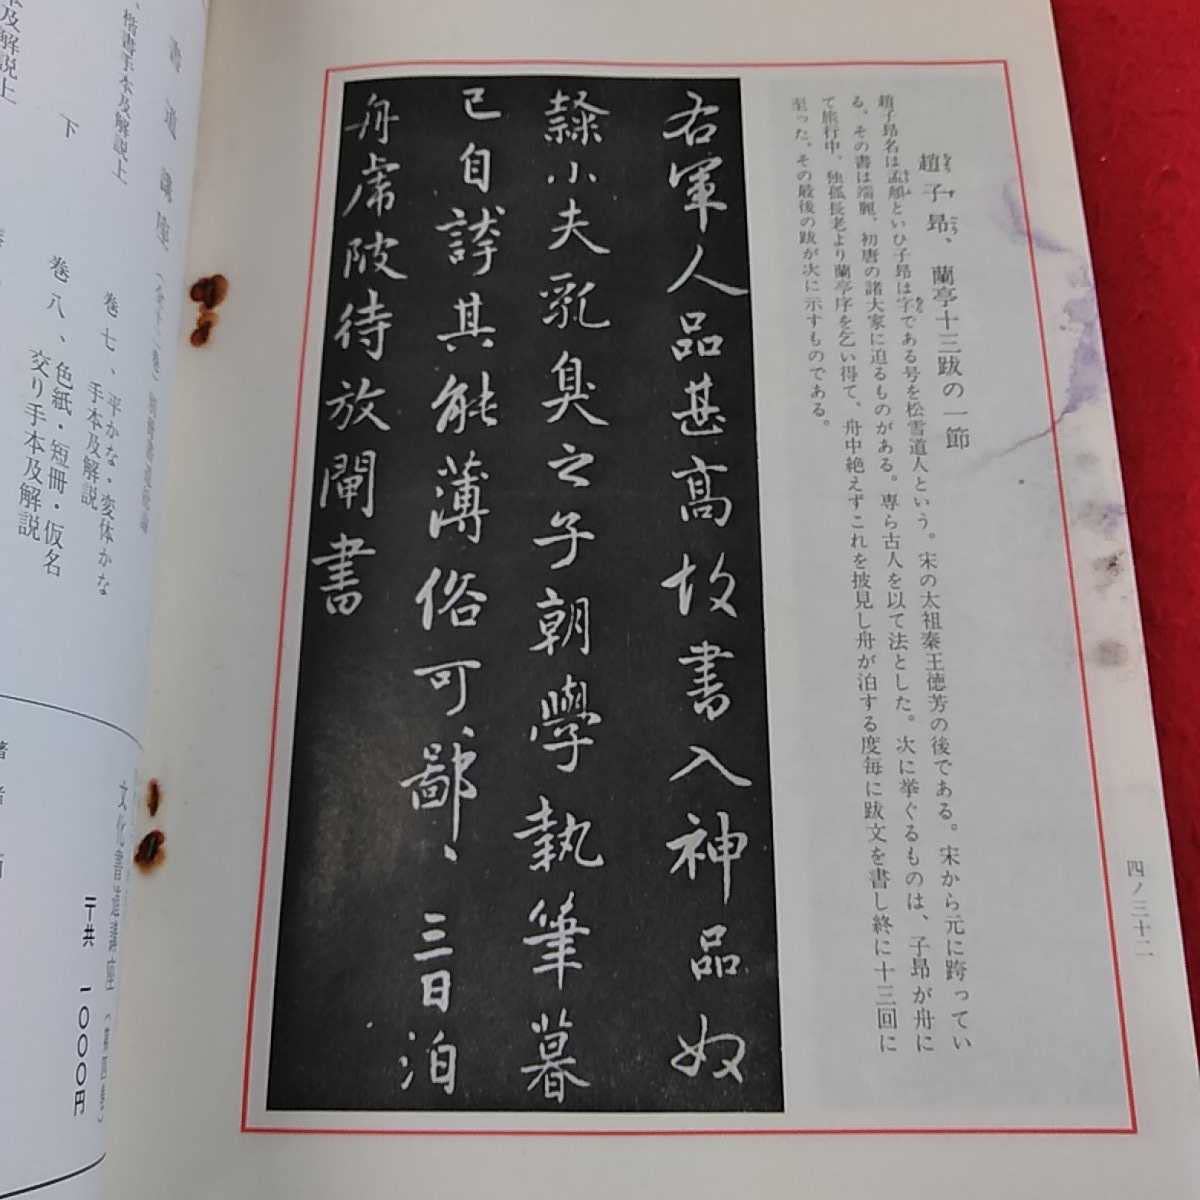 趙子昂、蘭亭十三跋の一節
趙子昂名は孟頫といひ子昂は字である号を松雪道人という。宋の太祖秦王徳芳の後である。宋から元に跨ってい
る。その書は端麗、初唐の諸大家に迫るものがある。専ら古人を以て法とした。次に挙ぐるものは、子昂が舟に
て旅行中、独孤長老より蘭亭序を乞い得て、舟中絶えずこれを披見し舟が泊する度毎に跋文を書し終に十三回に
至った。その最後の跋が次に示すものである。
右軍人品甚高故書入神品奴
隸小夫乳臭之子朝學執筆暮
已自誇其能薄俗可、鄙、三日泊
舟虎陂待放閘書
四ノ三十二
書道講座
、楷書手本及解説上
及解説上
下
巻七、平かな・変体かな
手本及解説
巻八、色紙・短冊・仮名
交り手本及解説
文化書道講座(第四巻)
〒共 一〇〇〇円
著者